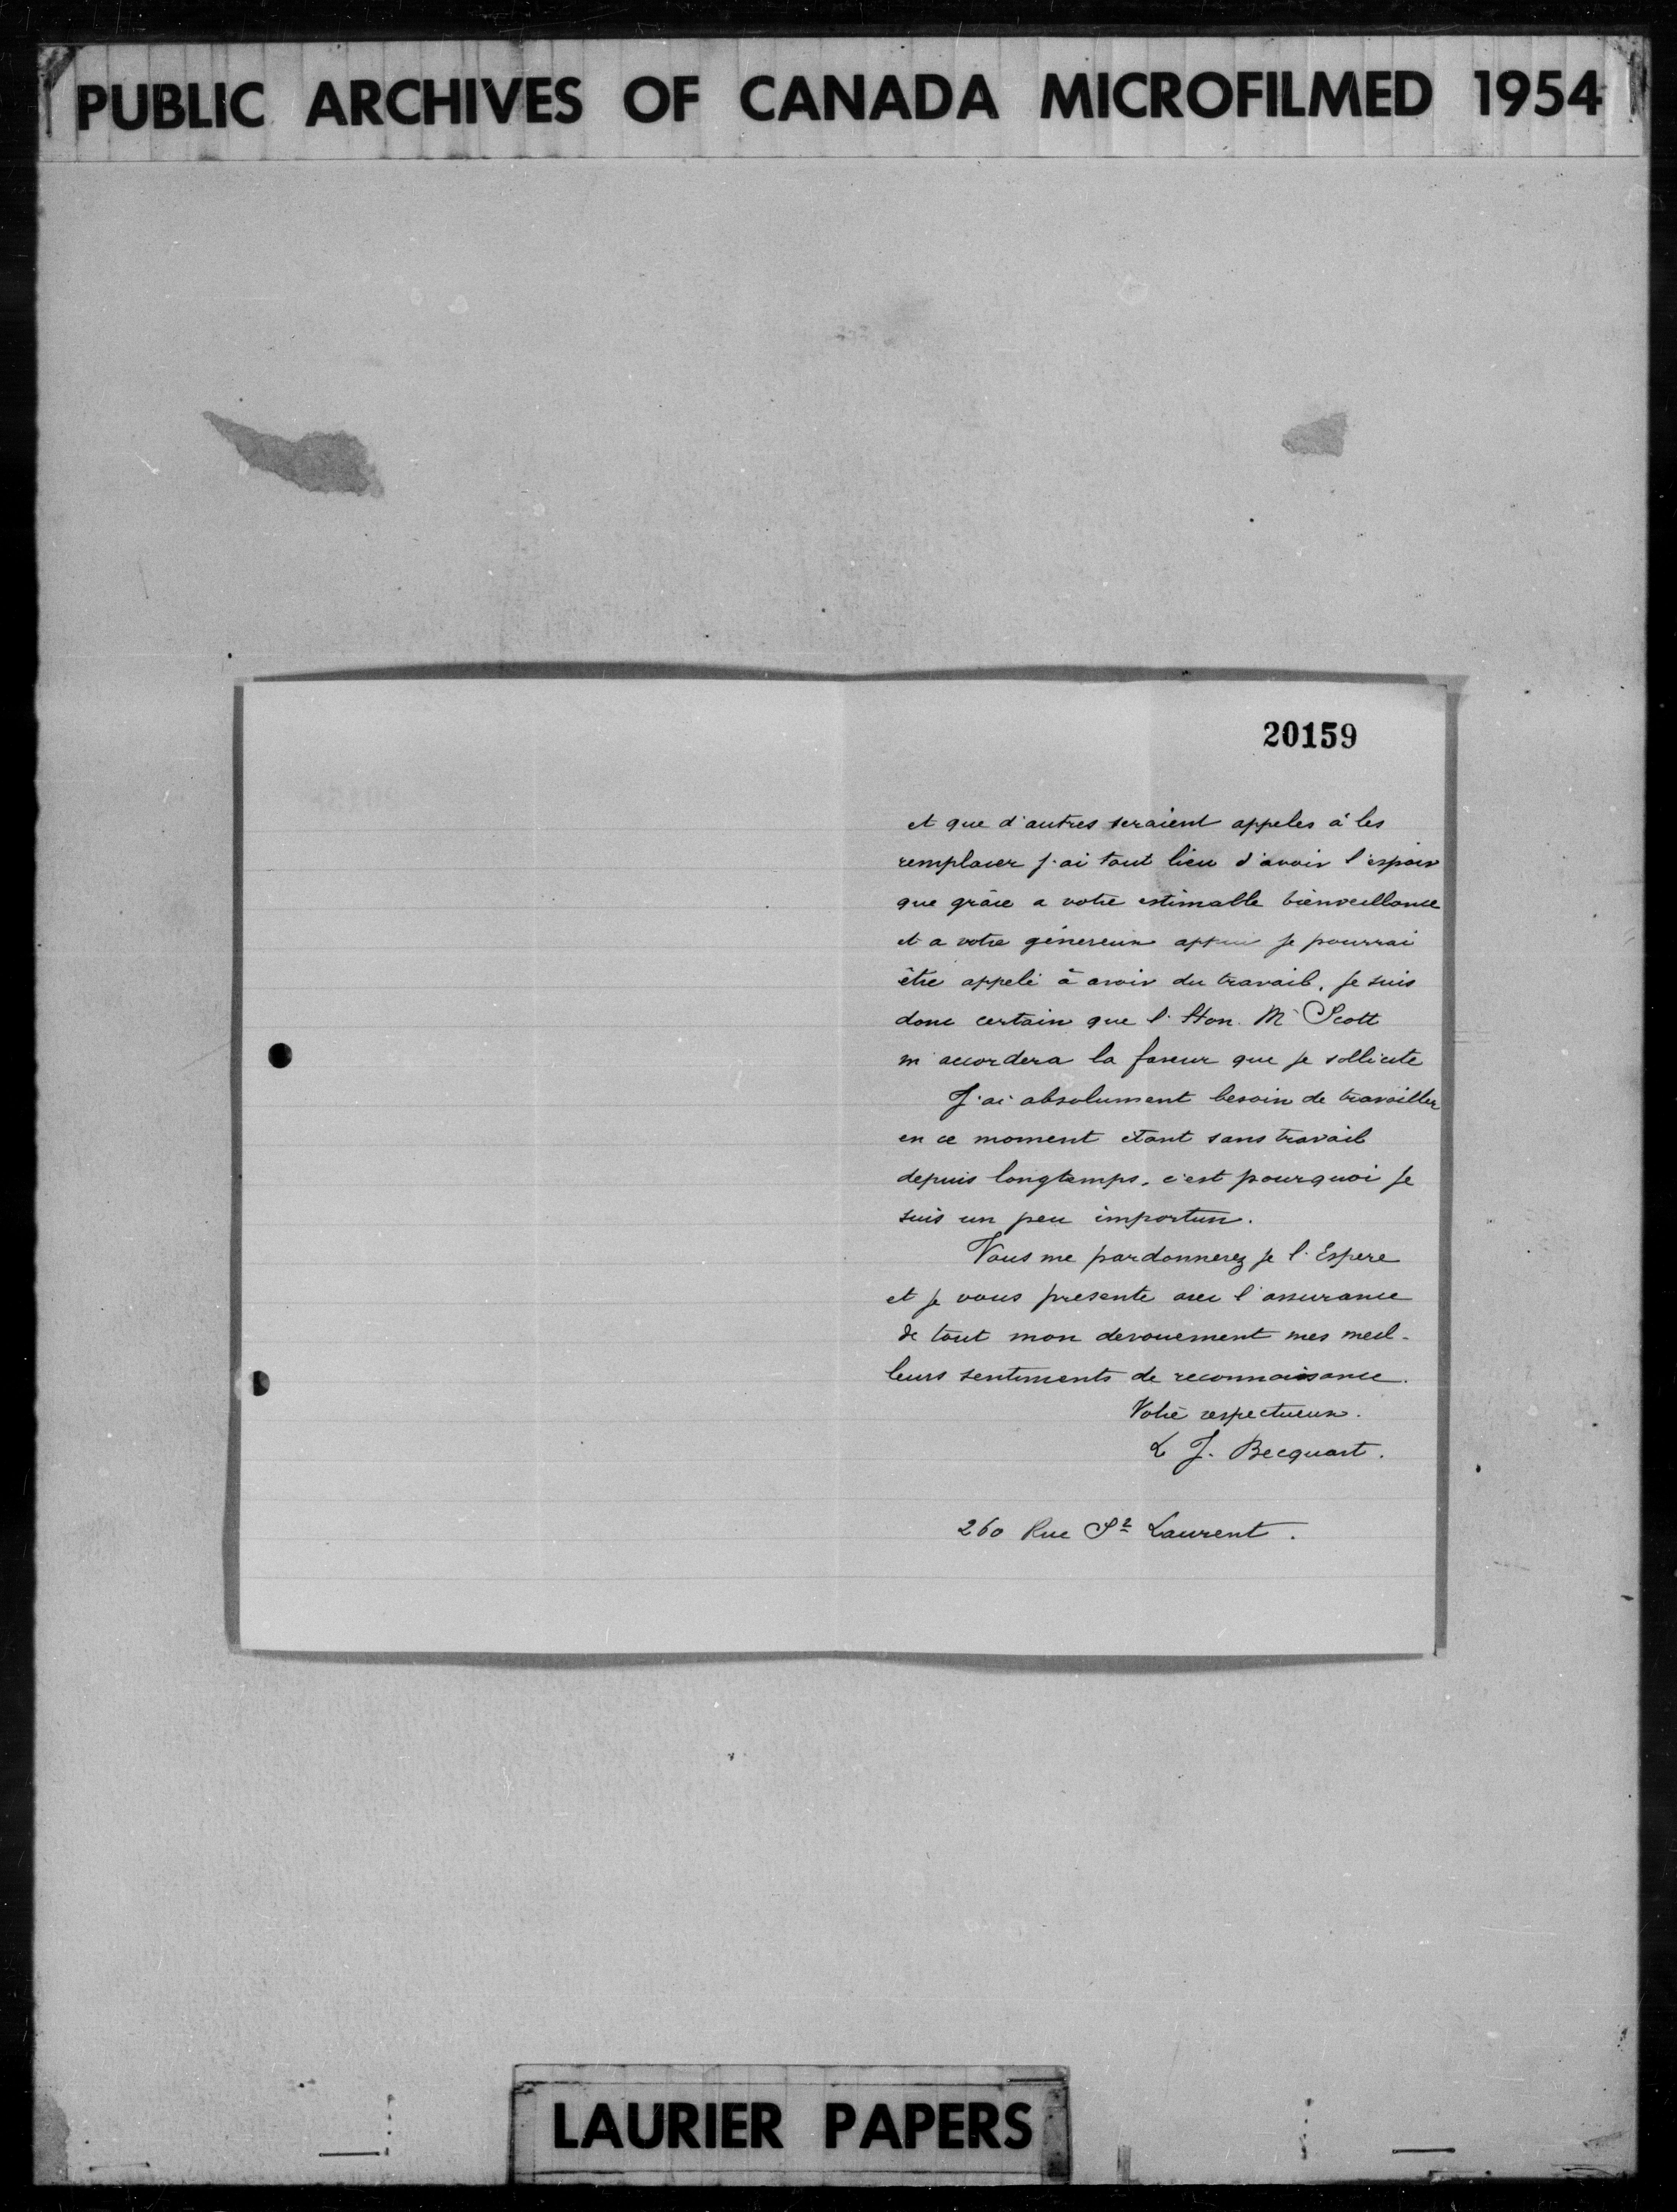 PUBLIC ARCHIVES OF CANADA MICROFILMED 1954
20159
et que d'autres seraient appeles à les
remplacer j'ai tout lieu d'avoir l'espoir
que grâce a votre estimable bienveillance
et a votre génereux appui je pourrai
être appelé à avoir du travail, je suis
donc certain que l'Hon. Mr Scott
m'accordera la faveur que je sollicite
J'ai absolument besoin de travailler
en ce moment étant sans travail
depuis longtemps, c'est pourquoi je
suis un peu importun.
Vous me pardonnerez je l'Espere
et je vous presente avec l'assurance
de tout mon devouement mes meil-
leurs sentiments de reconnaissance.
Votre respectueux.
L J. Becquart.
260 Rue St Laurent.
LAURIER PAPERS